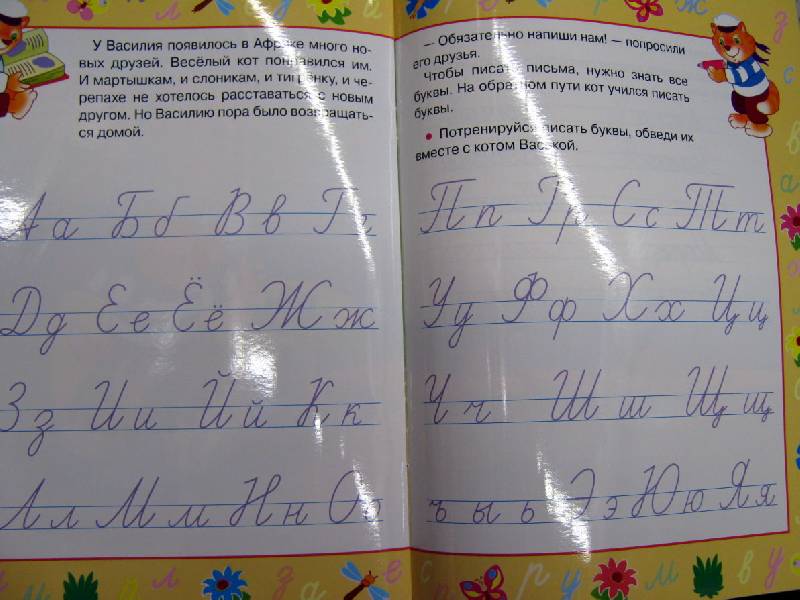 У Василия появилось в Африке много но-
вых друзей. Весёлый кот понравился им.
И мартышкам, и слоникам, и тигрёнку, и че-
репахе не хотелось расставаться с новым
другом. Но Василию пора было возвращать-
ся домой.
Аа Бб Вв Гг
Дд Ее Ёё Жж
Зз Ии Йй Кк
Лл Мм Нн Оо
— Обязательно напиши нам! — попросили
его друзья.
Чтобы писать письма, нужно знать все
буквы. На обратном пути кот учился писать
буквы.
• Потренируйся писать буквы, обведи их
вместе с котом Васькой.
Пп Рр Сс Тт
Уу Фф Хх Цц
Чч Шш Щщ
ъ ы ь Ээ Юю Яя